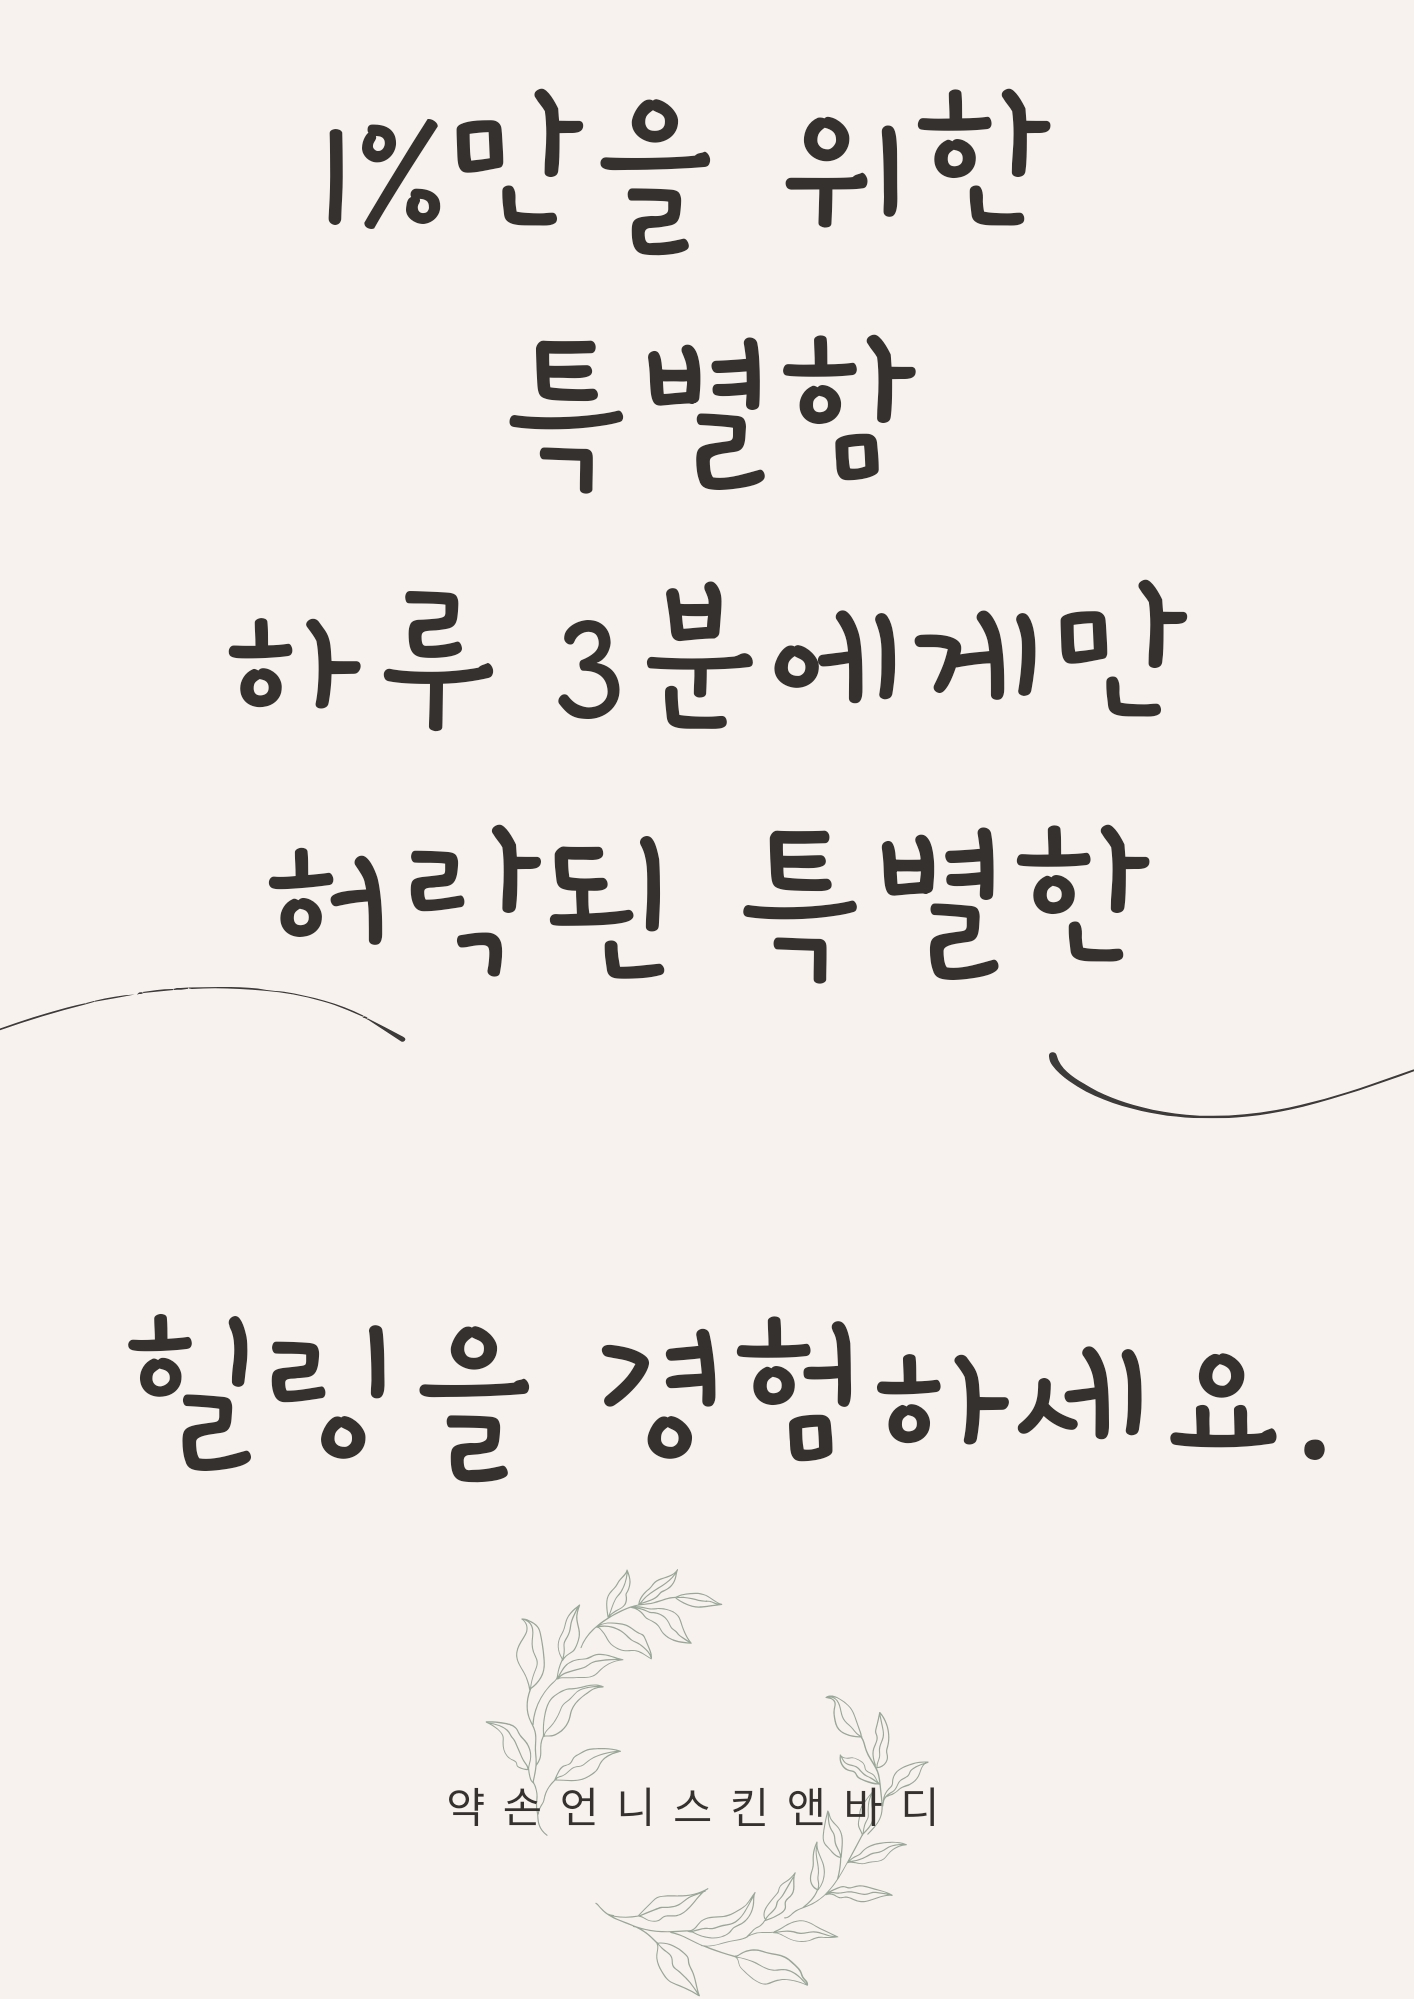 1%만을 위한
특별함
하루 3분에게만
허락된 특별한
힐링을 경험하세요.
약손언니스킨앤바디